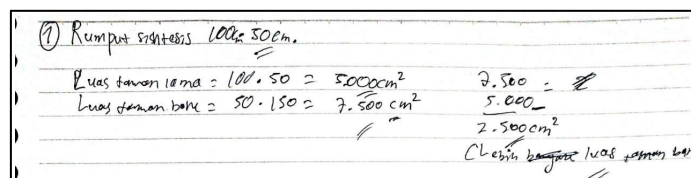 ① Rumput sintesis 100cm 50cm.
Luas taman lama = 100 . 50 = 5.000cm²
Luas taman baru = 50 . 150 = 7.500 cm²
7.500 =
5.000 _
2.500cm²
(Lebih luas taman bar